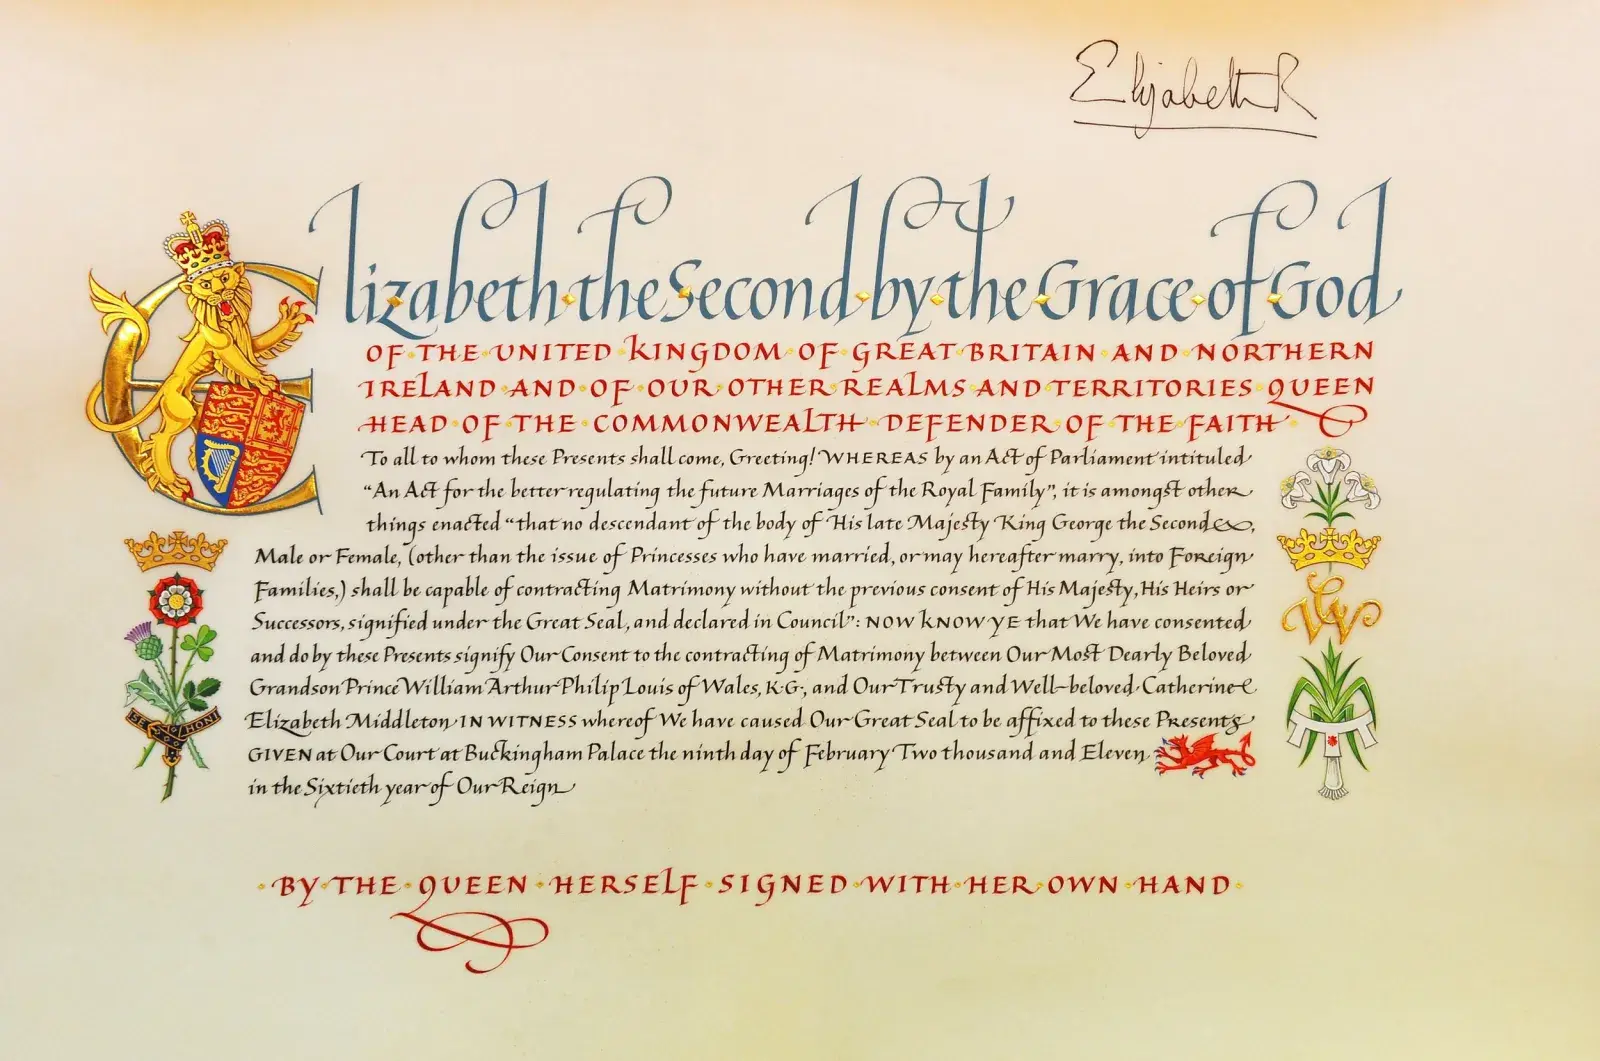 Elizabeth R
Elizabeth the Second by the Grace of God
OF THE UNITED KINGDOM OF GREAT BRITAIN AND NORTHERN
IRELAND AND OF OUR OTHER REALMS AND TERRITORIES QUEEN
HEAD OF THE COMMONWEALTH DEFENDER OF THE FAITH
To all to whom these Presents shall come, Greeting! WHEREAS by an Act of Parliament intituled
“An Act for the better regulating the future Marriages of the Royal Family”, it is amongst other
things enacted “that no descendant of the body of His late Majesty King George the Second,
Male or Female, (other than the issue of Princesses who have married, or may hereafter marry, into Foreign
Families,) shall be capable of contracting Matrimony without the previous consent of His Majesty, His Heirs or
Successors, signified under the Great Seal, and declared in Council”: NOW KNOW YE that We have consented
and do by these Presents signify Our Consent to the contracting of Matrimony between Our Most Dearly Beloved
Grandson Prince William Arthur Philip Louis of Wales, K.G., and Our Trusty and Well-beloved Catherine
Elizabeth Middleton IN WITNESS whereof We have caused Our Great Seal to be affixed to these Presents
GIVEN at Our Court at Buckingham Palace the ninth day of February Two thousand and Eleven
in the Sixtieth year of Our Reign
BY THE QUEEN HERSELF SIGNED WITH HER OWN HAND